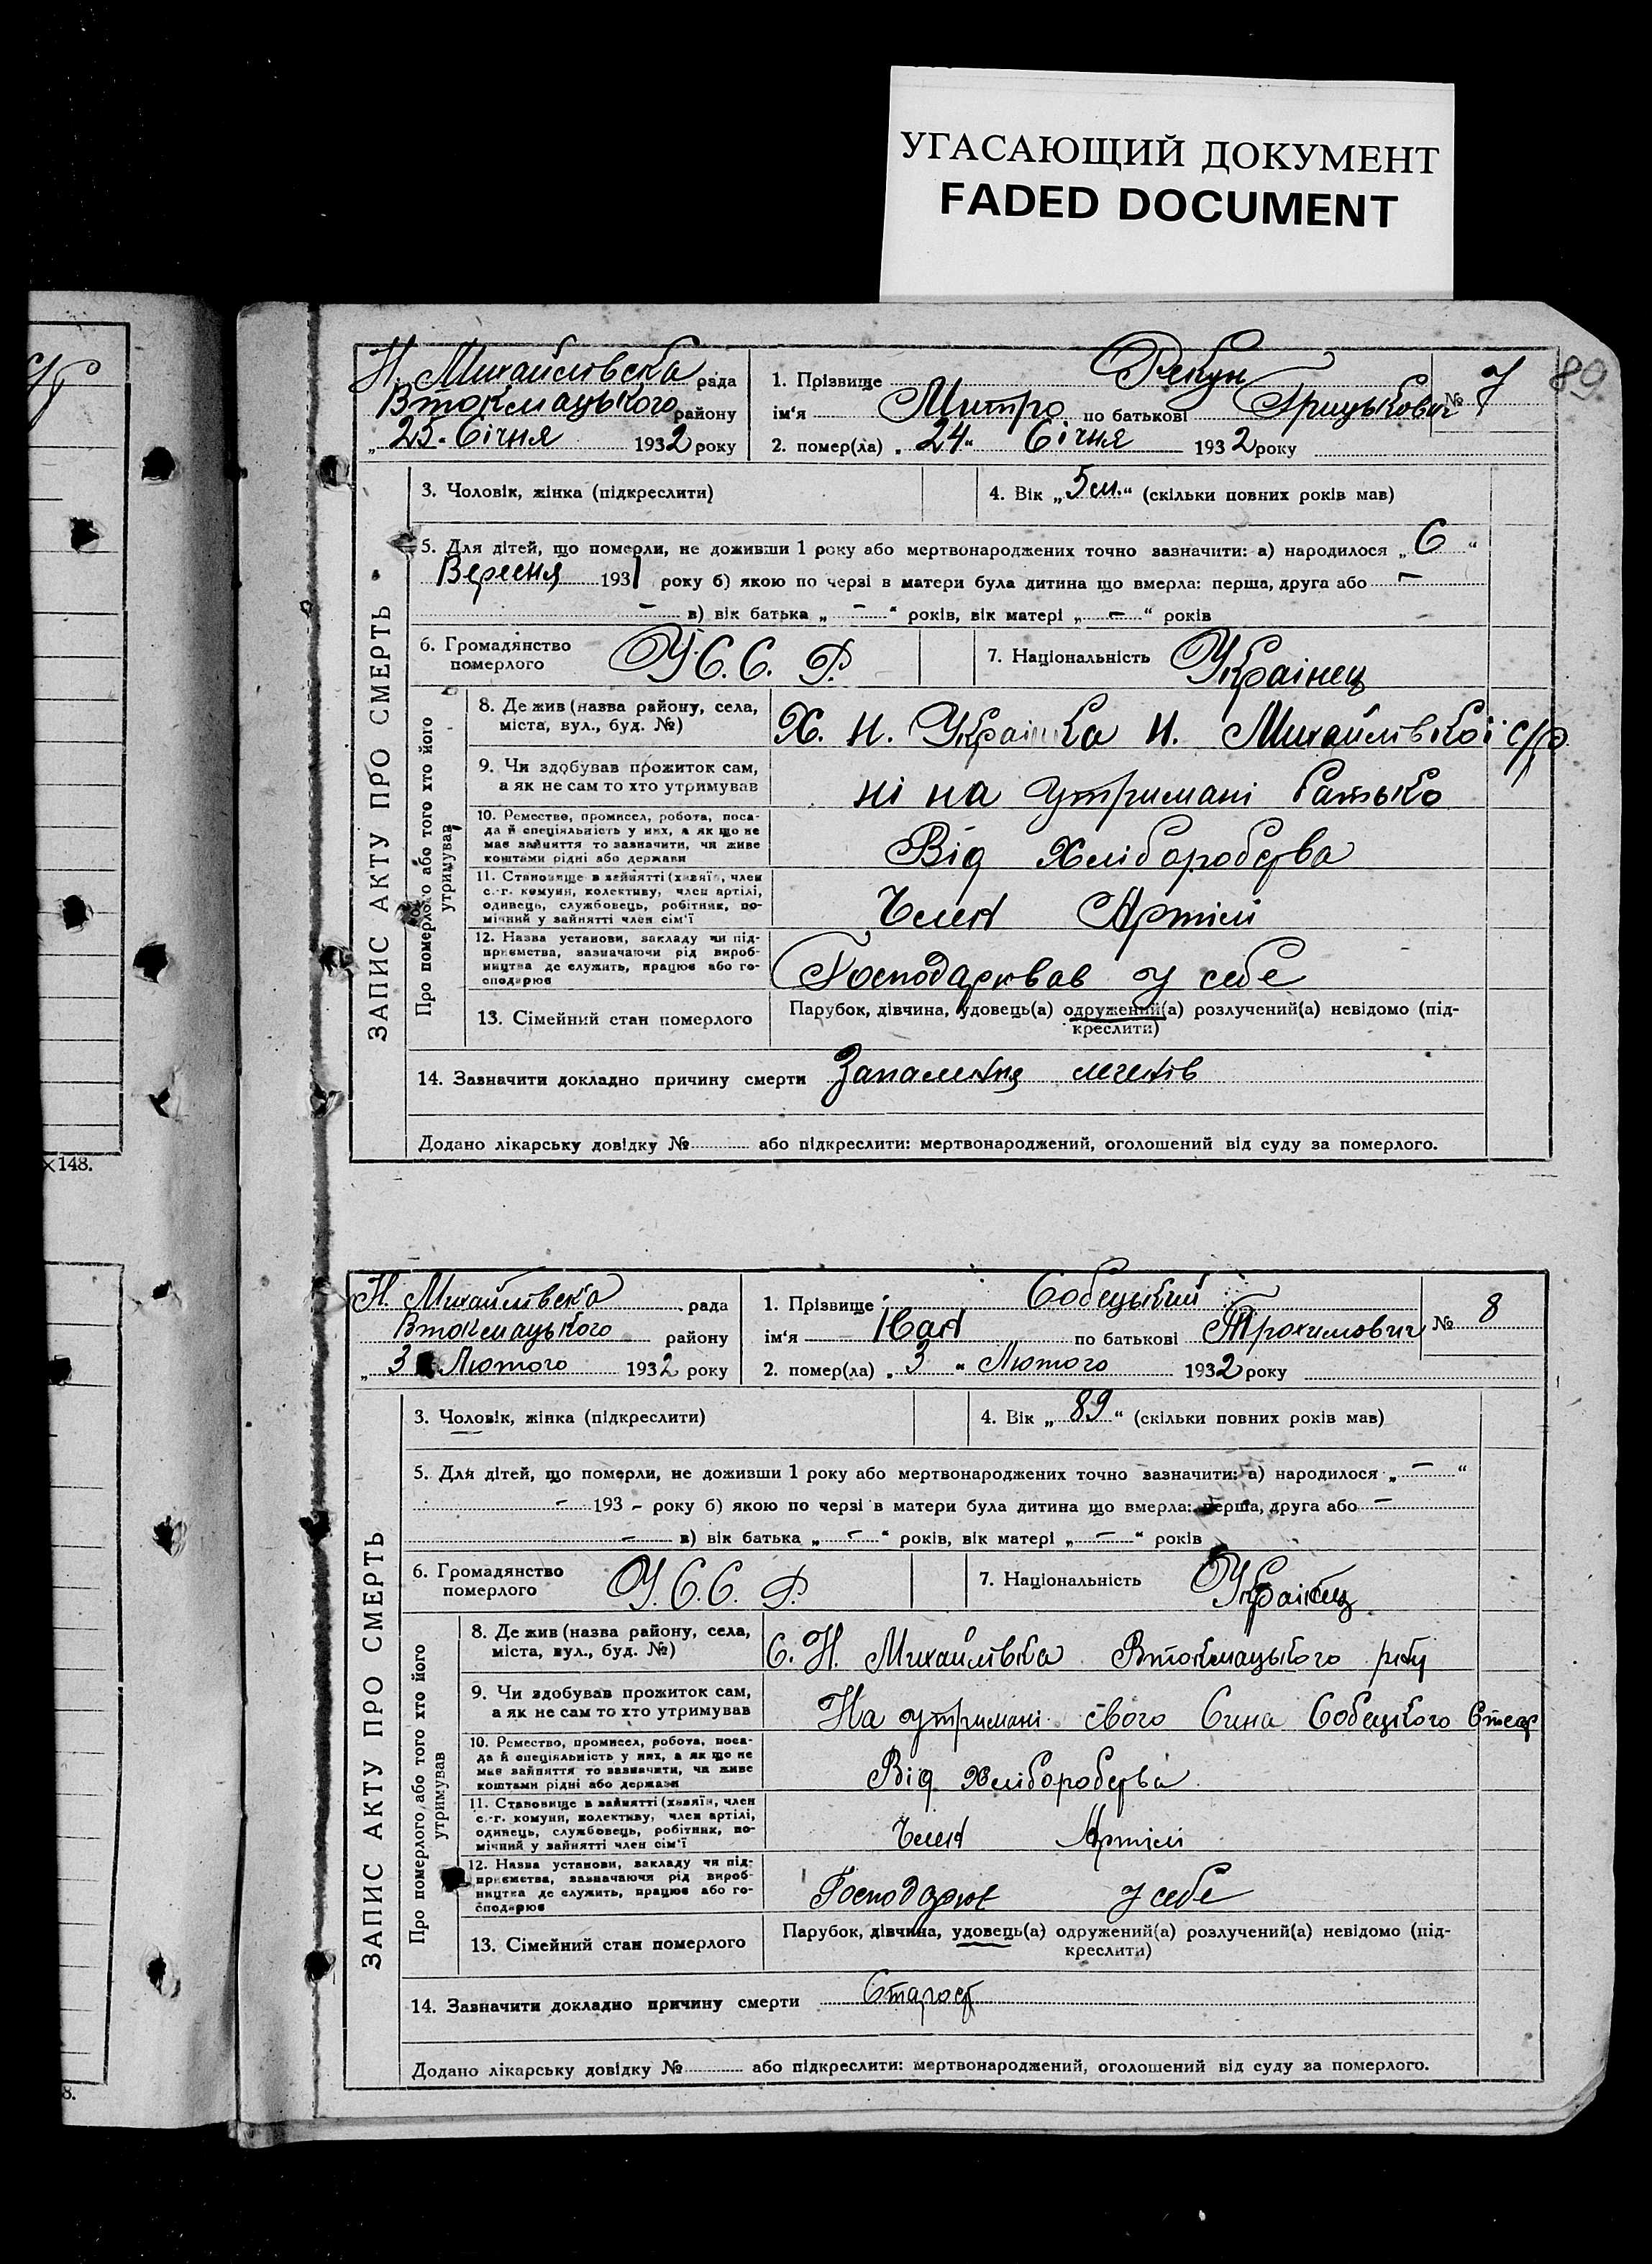 УГАСАЮЩИЙ ДОКУМЕНТ
FADED DOCUMENT
89
Н. Михайлівська рада
Втокмацького району
„25" Січня 1932 року
1. Прізвище Рекун № 7
ім'я Митро по батькові Грицькович
2. помер(ла) „24" Січня 1932 року
ЗАПИС АКТУ ПРО СМЕРТЬ
3. Чоловік, жінка (підкреслити)
4. Вік „5 м." (скільки повних років мав)
5. Для дітей, що померли, не доживши 1 року або мертвонароджених точно зазначити: а) народилося „6"
Вересня 1931 року б) якою по черзі в матери була дитина що вмерла: перша, друга або –
– в) вік батька „–" років, вік матері „–" років
6. Громадянство
померлого
У.С.С.Р.
7. Національність Украінец
Про померлого або того хто його
утримував
8. Де жив (назва району, села,
міста, вул., буд. №)
Х. Н. Українка Н. Михайлівкої с/р
9. Чи здобував прожиток сам,
а як не сам то хто утримував
ні на утримані батько
10. Ремество, промисел, робота, поса-
да й спеціяльність у них, а як що не
має зайняття то зазначити, чи живе
коштами рідні або держави
Від Хліборобства
11. Становище в зайнятті (хазяїн, член
с.-г. комуни, колективу, член артілі,
одинець, службовець, робітник, по-
мічний у зайнятті член сім'ї
Член Артілі
12. Назва установи, закладу чи під-
приємства, зазначаючи рід вироб-
ництва де служить, працює або го-
сподарює
Господарював у себе
13. Сімейний стан померлого
Парубок, дівчина, удовець(а) одружений(а) розлучений(а) невідомо (під-
креслити)
14. Зазначити докладно причину смерти Запалення легенів
Додано лікарську довідку № або підкреслити: мертвонароджений, оголошений від суду за померлого.
×148.
Н. Михайлівська рада
Втокмацького району
„3 Лютого 1932 року
1. Прізвище Собецький № 8
ім'я Іван по батькові Трохимович
2. помер(ла) „3" Лютого 1932 року
ЗАПИС АКТУ ПРО СМЕРТЬ
3. Чоловік, жінка (підкреслити)
4. Вік „89" (скільки повних років мав)
5. Для дітей, що померли, не доживши 1 року або мертвонароджених точно зазначити: а) народилося „–"
– 193 – року б) якою по черзі в матери була дитина що вмерла: перша, друга або –
– в) вік батька „–" років, вік матері „–" років
6. Громадянство
померлого
У.С.С.Р.
7. Національність Украінец
Про померлого або того хто його
утримував
8. Де жив (назва району, села,
міста, вул., буд. №)
С. Н. Михайлівка Втокмацького р-ну
9. Чи здобував прожиток сам,
а як не сам то хто утримував
На утримані свого Сина Собецкого
10. Ремество, промисел, робота, поса-
да й спеціяльність у них, а як що не
має зайняття то зазначити, чи живе
коштами рідні або держави
Від хліборобства
11. Становище в зайнятті (хазяїн, член
с.-г. комуни, колективу, член артілі,
одинець, службовець, робітник, по-
мічний у зайнятті член сім'ї
Член Артілі
12. Назва установи, закладу чи під-
приємства, зазначаючи рід вироб-
ництва де служить, працює або го-
сподарює
Господарює у себе
13. Сімейний стан померлого
Парубок, дівчина, удовець(а) одружений(а) розлучений(а) невідомо (під-
креслити)
14. Зазначити докладно причину смерти Старост
Додано лікарську довідку № або підкреслити: мертвонароджений, оголошений від суду за померлого.
8.